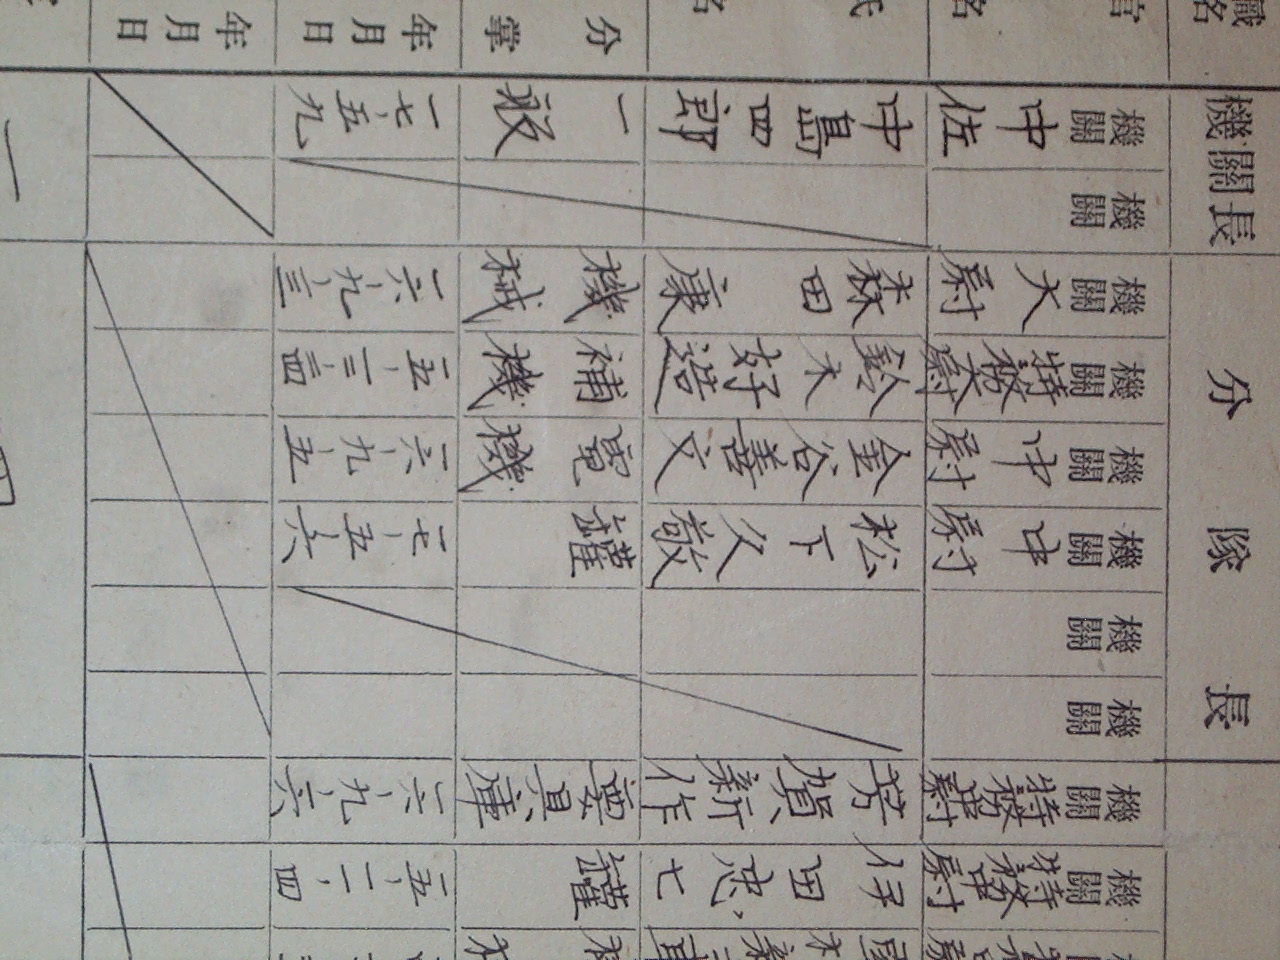 職名
官名
氏名
分掌
年月日
年月日
機關長
機關
中佐
中島四郎
一般
一七、五、九
機關
分隊長
機關
大尉
森田康
機械
一六、九、三
機關
特務大尉
鈴木好造
補機
機關
中尉
金谷善文
電機
一六、九、五
機關
中尉
松下久敬
罐
一七、五、六
機關
機關
機關
特務
芳賀新作
要具庫
一六、九、六
機關
特務中尉
伊田忠七
罐